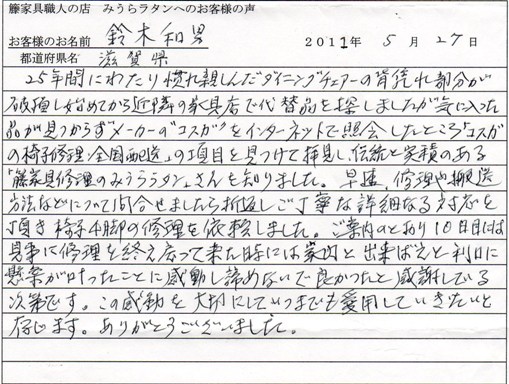 籐家具職人の店　みうらラタンへのお客様の声
お客様のお名前　鈴木和男　2011年5月27日
都道府県名　滋賀県
25年間にわたり慣れ親しんだダイニングチェアーの背凭れ部分が
破損し始めてから近隣の家具店で代替品を探しましたが気に入った
品が見つからずメーカーの"コスガ"をインターネットで照会したところ「コスガ
の椅子修理/全国配送」の項目を見つけて拝見し、伝統と実積のある
「籐家具修理のみうらラタン」さんを知りました。早速、修理や搬送
方法などについて問合せましたら折返しご丁寧な詳細なる対応を
頂き椅子4脚の修理を依頼しました。ご案内のとおり10日目には
見事に修理を終え戻って来た時には家内と出来ばえと利口に
懸案がけたことに感動し諦めないで良かったと感謝している
次第です。この感動を大切にしていつまでも愛用していきたいと
存じます。ありがとうございました。